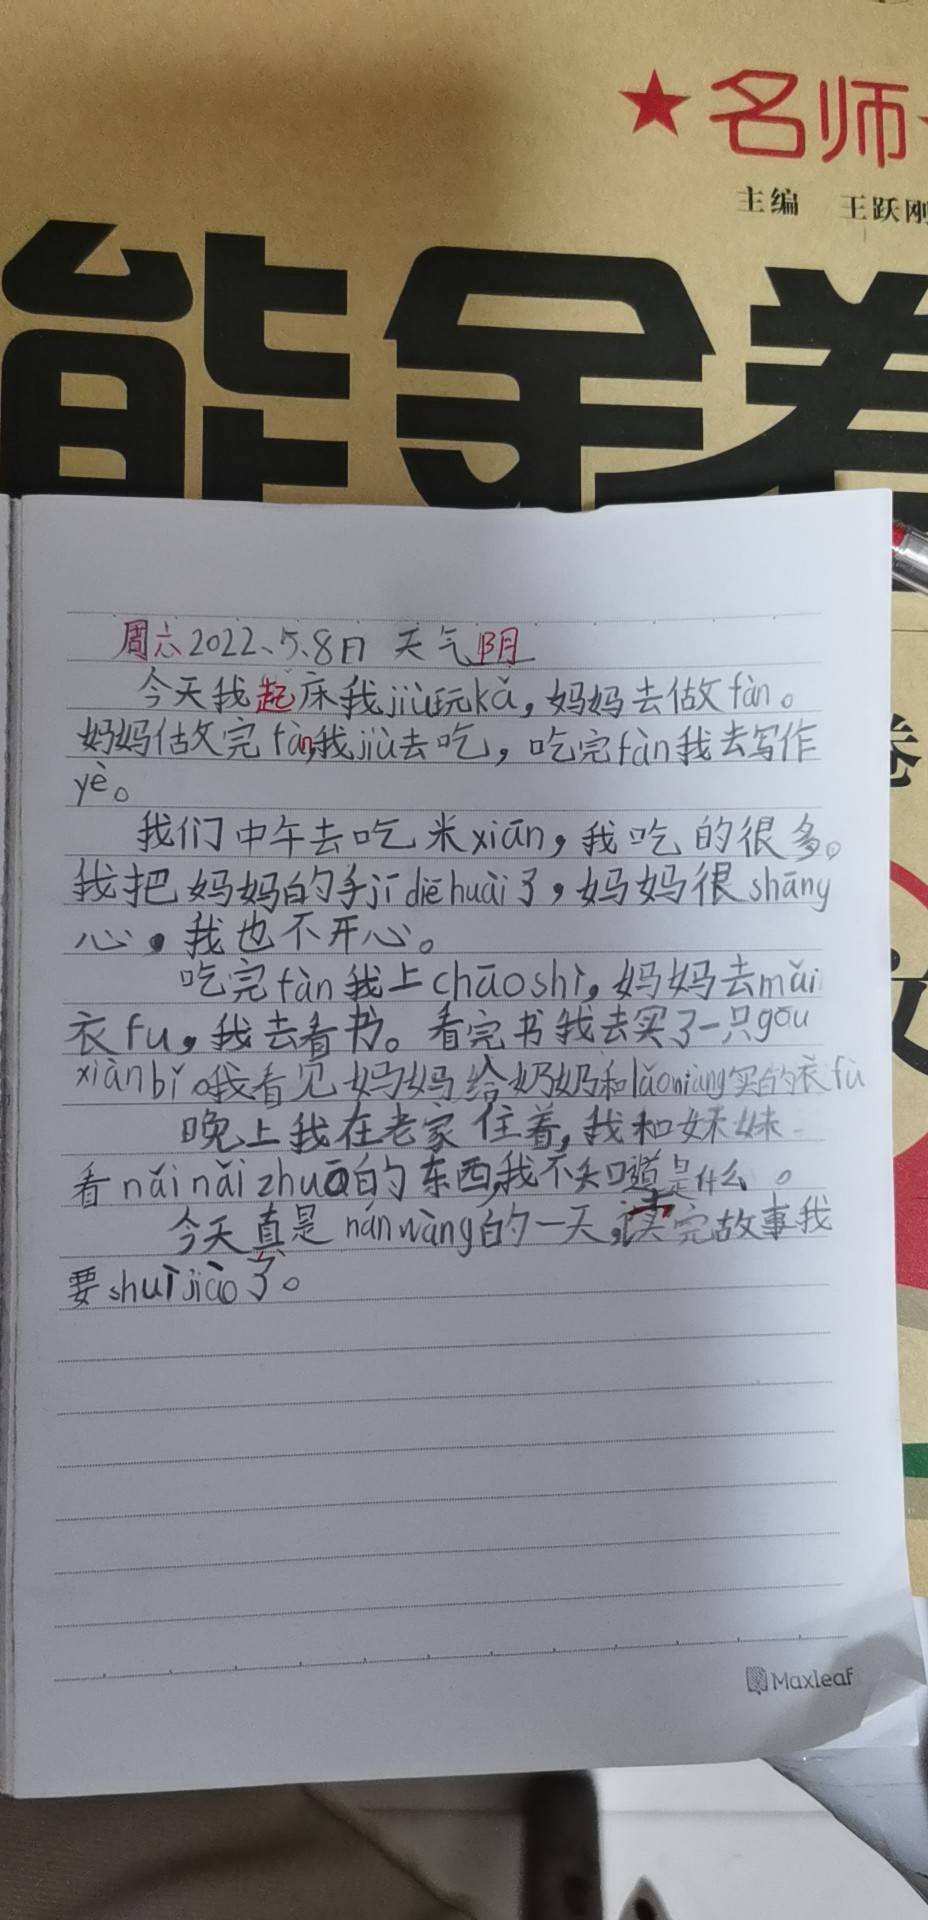 ★名师
主编 王跃刚
能金卷
卷
周六2022、5、8日 天气阴
今天我起床我jiù玩kǎ，妈妈去做fàn。
妈妈做完fàn,我jiù去吃，吃完fàn我去写作
yè。
我们中午去吃米xiàn，我吃的很多。
我把妈妈的手jī diēhuài了，妈妈很shāng
心，我也不开心。
吃完fàn我上chāoshì，妈妈去mǎi
衣fu，我去看书。看完书我去买了一只gōu
xiànbǐ。我看见妈妈给奶奶和lǎoniáng买的衣fù
晚上我在老家住着，我和妹妹
看nǎinǎizhuā的东西,我不知道是什么。
今天真是nánwàng的一天，读完故事我
要shuìjiào了。
Maxleaf